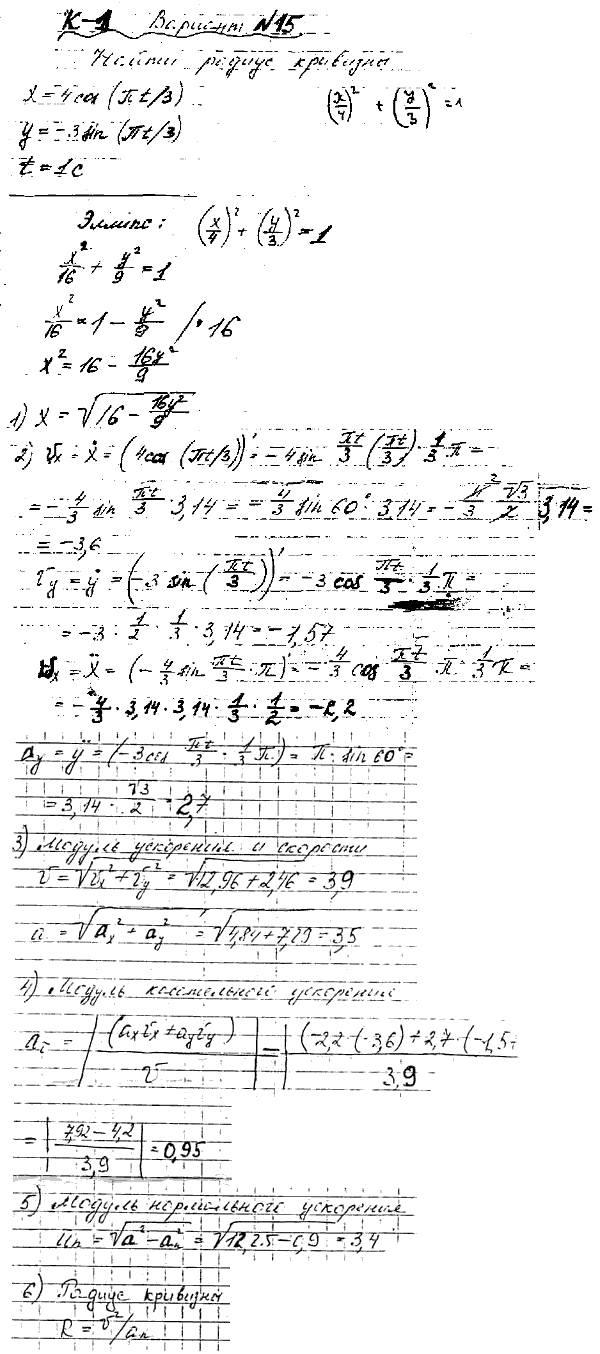 К-1 Вариант №15
Найти радиус кривизны
x = 4cos (πt/3)
(x/4)² + (y/3)² = 1
y = -3 sin (πt/3)
t = 1c
Эллипс: (x/4)² + (y/3)² = 1
x²/16 + y²/9 = 1
x²/16 = 1 - y²/9 /·16
x² = 16 - 16y²/9
1) x = √(16 - 16y²/9)
2) Vx = ẋ = (4cos (πt/3))' = -4 sin πt/3 (πt/3) · 1/3 π =
= -4/3 sin πt/3 · 3,14 = -4/3 sin 60° · 3,14 = -4²/3 √3/2 3,14 =
= -3,6
Vy = ẏ = (-3 sin (πt/3))' = -3 cos πt/3 · 1/3 π =
= -3 · 1/2 · 1/3 · 3,14 = -1,57
ax = ẍ = (-4/3 sin πt/3 · π)' = -4/3 cos πt/3 · π · 1/3 π =
= -4/3 · 3,14 · 3,14 · 1/3 · 1/2 = -2,2
ay = ÿ = (-3cos πt/3 · 1/3 π) = π · sin 60° =
= 3,14 · √3/2 = 2,7
3) Модуль ускорения и скорости
V = √(Vx² + Vy²) = √(12,96 + 2,46) = 3,9
a = √(ax² + ay²) = √(4,84 + 7,29) = 3,5
4) Модуль касательного ускорения
aτ = |(axVx + ayVy)/V| = |(-2,2 · (-3,6) + 2,7 · (-1,5+ / 3,9
= |7,92 - 4,2 / 3,9| = 0,95
5) Модуль нормального ускорения
an = √(a² - an²) = √(12,25 - 0,9) = 3,4
6) Радиус кривизны
R = V²/an